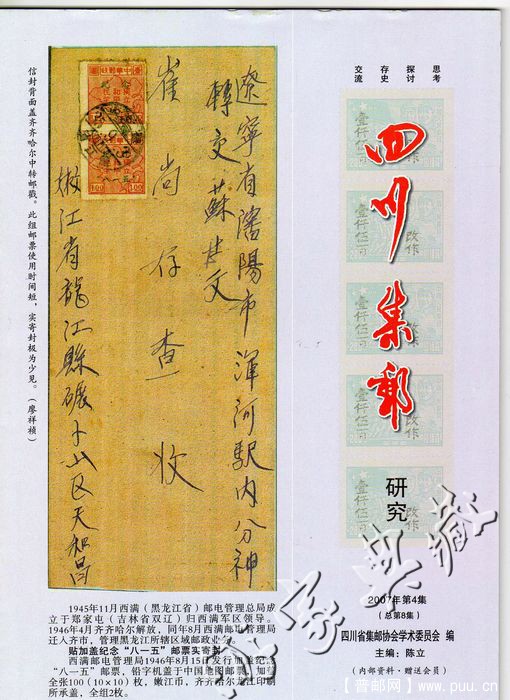 思考
探讨
存史
交流
四川集邮
研究
2007年第4集
(总第8集)
四川省集邮协会学术委员会 编
主编：陈立
(内部资料·赠送会员)
壹仟伍百
改作
壹仟伍百
改作
壹仟伍百
改作
壹仟伍百
改作
壹仟伍百
改作
遼寧省瀋陽市渾河駅内八分神
轉交蘇
崔尚存查收
嫩江省龍江縣碾子山区天和昌
信封背面盖齐齐哈尔中转邮戳。此组邮票使用时间短，实寄封极为少见。(廖祥桢)
1945年11月西满(黑龙江省)邮电管理总局成
立于郑家屯(吉林省双辽)归西满军区领导。
1946年4月齐齐哈尔解放，同年8月西满邮电管理局
迁入齐市，管理黑龙江所辖区域邮政业务。
贴加盖纪念“八一五”邮票实寄封
西满邮电管理局1946年8月15日发行加盖纪念
“八一五”邮票，铅字机盖于中国地图邮票，加盖
全张100(10×10)枚，嫩江币，齐齐哈尔龙江印刷
所承盖，全组2枚。
[普邮网] www.puu.cn